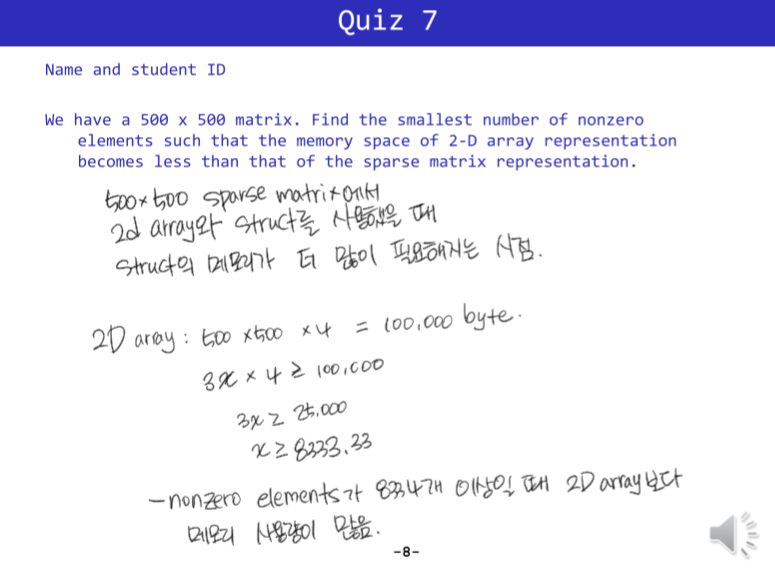 Quiz 7
Name and student ID
We have a 500 x 500 matrix. Find the smallest number of nonzero
elements such that the memory space of 2-D array representation
becomes less than that of the sparse matrix representation.
500×500 sparse matrix에서
2d array와 struct를 사용했을 때
struct의 메모리가 더 많이 필요해지는 시점.
2D array : 500 ×500 ×4 = 100,000 byte.
3x × 4 ≥ 100,000
3x ≥ 25,000
x ≥ 8333.33
-nonzero elements가 8334개 이상일 때 2D array보다
메모리 사용량이 많음.
-8-